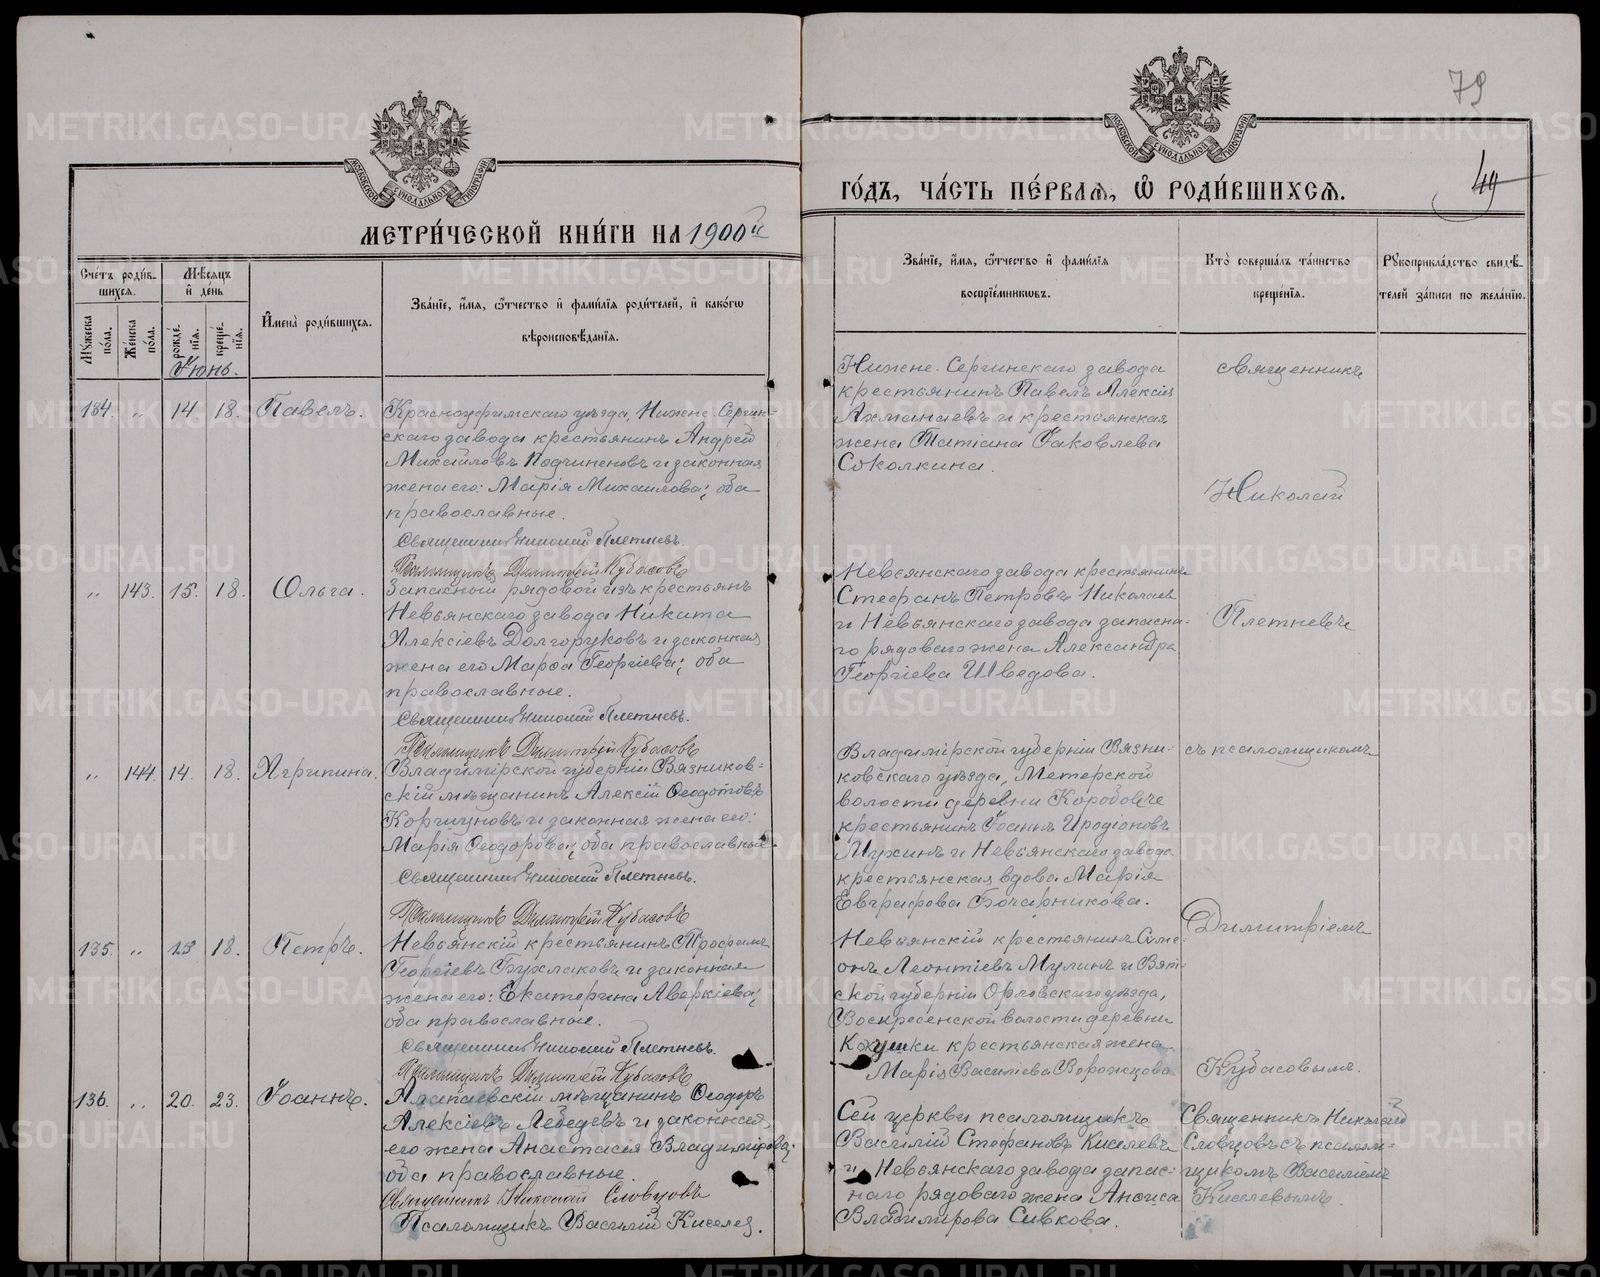 79
49
МОСКОВСКОЙ СУНОДАЛЬНОЙ ТИПОГРАФІИ
МОСКОВСКОЙ СУНОДАЛЬНОЙ ТИПОГРАФІИ
МЕТРИ́ЧЕСКОЙ КНИ́ГИ НА 1900й
ГО́ДЪ, ЧА́СТЬ ПЕ́РВАѦ, Ѡ РОДИ́ВШИХСѦ.
Сче́тъ роди́в-
шихсѧ.
Мꙋжеска по́ла.
Же́нска по́ла.
Мѣ́сѧцъ
и҆ де́нь
рожде́нїѧ.
креще́нїѧ.
И҆мена̀ роди́вшихсѧ.
Зва́нїе, и҆́мѧ, ѻ҆́тчество и҆ фами́лїѧ роди́телей, и҆ како́гѡ
вѣроисповѣ́данїѧ.
Зва́нїе, и҆́мѧ, ѻ҆́тчество и҆ фами́лїѧ
воспрїе́мникѡвъ.
Кто̀ соверша́лъ та́инство
креще́нїѧ.
Рꙋкоприкла́дство свидѣ́-
телей за́писи по жела́нїю.
Іюнь.
134. „ 14 18. Павелъ.
Красноуфимскаго уѣзда, Нижне-Сергин-
скаго завода крестьянинъ Андрей
Михайловъ Подчиненовъ и законная
жена его: Марія Михайлова; оба
православные.
Священникъ Николай Плетневъ.
Псаломщикъ Димитрій Кубасовъ
Нижне-Сергинскаго завода
крестьянинъ Павелъ Алексіев
Ахманаевъ и крестьянская
жена Татіана Іаковлева
Соколкина.
Священникъ
Николай
„ 143. 15. 18. Ольга.
Запасный рядовой изъ крестьянъ
Невьянскаго завода Никита
Алексіевъ Долгоруковъ и законная
жена его Марѳа Георгіева; оба
православные.
Священникъ Николай Плетневъ.
Псаломщикъ Димитрій Кубасовъ
Невьянскаго завода крестьянинъ
Стефанъ Петровъ Николаев
и Невьянскаго завода запасна-
го рядоваго жена Александра
Георгіева Шведова.
Плетневъ
„ 144 14. 18. Агрипина.
Владимірской губерніи Вязников-
скій мѣщанинъ Алексій Ѳеодотовъ
Коргуновъ и законная жена его:
Марія Ѳеодорова; оба православные.
Священникъ Николай Плетневъ.
Псаломщикъ Димитрій Кубасовъ
Владимірской губерніи Вязни-
ковскаго уѣзда, Метерской
волости деревни
крестьянинъ Іоаннъ Иродіоновъ
Мухинъ и Невьянскаго завода
крестьянская вдова Марія
Евграфова Бочарникова.
съ псаломщикомъ
Димитріемъ
135. „ 13 18. Петръ.
Невьянскій крестьянинъ Трофимъ
Георгіевъ Бухлаковъ и законная
жена его: Екатерина Аверкіева;
оба православные.
Священникъ Николай Плетневъ.
Псаломщикъ Димитрій Кубасовъ
Невьянскій крестьянинъ Симе-
онъ Леонтіевъ Мулинъ и Вят-
ской губерніи Орловскаго уѣзда,
Воскресенской волости деревни
крестьянская жена
Марія Василіева Ворожцова
Кубасовымъ.
136. „ 20. 23. Іоаннъ.
Алапаевскій мѣщанинъ Ѳеодоръ
Алексіевъ Лебедевъ и законная
его жена Анастасія Владимірова;
оба православные.
Священникъ Николай Словцовъ
Псаломщикъ Василій Киселев.
Сей церкви псаломщикъ
Василій Стефановъ Киселевъ
и Невьянскаго завода запас-
наго рядоваго жена Анѳиса
Владимірова Сивкова.
Священникъ Николай
Словцовъ съ псалом-
щикомъ Василіемъ
Киселевымъ.
METRIKI.GASO-URAL.RU